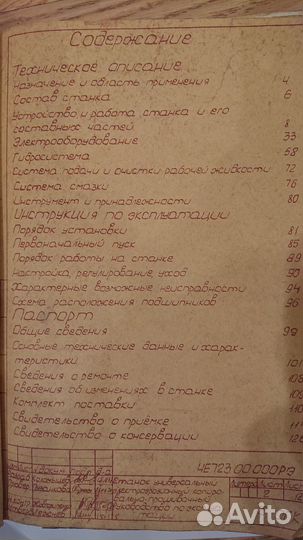 Содержание
Техническое описание
Назначение и область применения 4
Состав станка 6
Устройство и работа станка и его
составных частей 8
Электрооборудование 33
Гидросистема 58
Система подачи и очистки рабочей жидкости 72
Система смазки 76
Инструмент и принадлежности 80
Инструкция по эксплуатации
Порядок установки 81
Первоначальный пуск 85
Порядок работы на станке 89
Настройка, регулирование, уход 90
Характерные возможные неисправности 94
Схема расположения подшипников 96
Паспорт
Общие сведения 99
Основные технические данные и харак-
теристики 101
Сведения о ремонте
Сведения об изменениях в станке
Комплект поставки
Свидетельство о приёмке
Свидетельство о консервации
4Е723.00.000РЭ
Станок универсальный
Руководство по эк
Avito